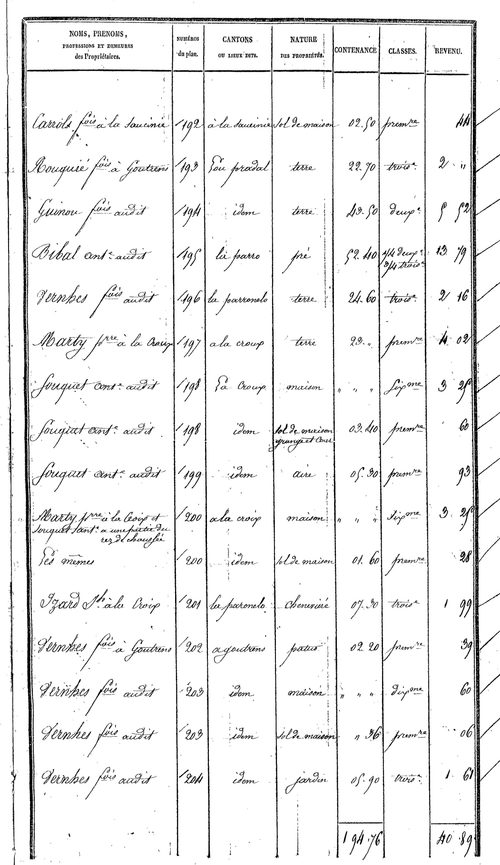 NOMS, PRENOMS, PROFESSIONS ET DEMEURES des Propriétaires. | NUMÉROS du plan. | CANTONS OU LIEUX DITS. | NATURE DES PROPRIÉTÉS. | CONTENANCE | CLASSES. | REVENU.
Carrols fois à la Saucinie 192 à la Saucinie sol de maison 02.50 premre 44
Rouquié fois à Goutrens 193 Lou pradal terre 22.70 trois. 2 "
Guinou fois audit 194 idem terre 43.50 deux. 5 52
Bibal ante. audit 195 la parro pré 52.40 1/4 deux. 3/4 trois. 13 79
Dernhes fois audit 196 la parronelo terre 24.60 trois. 2 16
Marty prre à la Croux 197 a la croux terre 23. " premre 4 02
Souquet ant. audit 198 La Croux maison " " " Sixme 3 25
Souquet ante. audit 198 idem sol de maison grange et cour 03.40 premre 60
Souquet ante. audit 199 idem aire 05.30 premre 93
Marty prre à la Croix et Souquet ante. a une partie du rez de chaussée 200 a la croix maison " " " Sixme 3 25
Les mêmes 200 idem sol de maison 01.60 premre 28
Izard Jh. à la Croix 201 la paronelo cheneviére 07.30 trois. 1 99
Dernhes fois à Goutrens 202 a goutrens patus 02.20 premre 39
Dernhes fois audit 203 idem maison " " " dixme 60
Dernhes fois audit 203 idem sol de maison " 36 premre 06
Dernhes fois audit 204 idem jardin 05.90 trois. 1 61
1 94.76 40 89